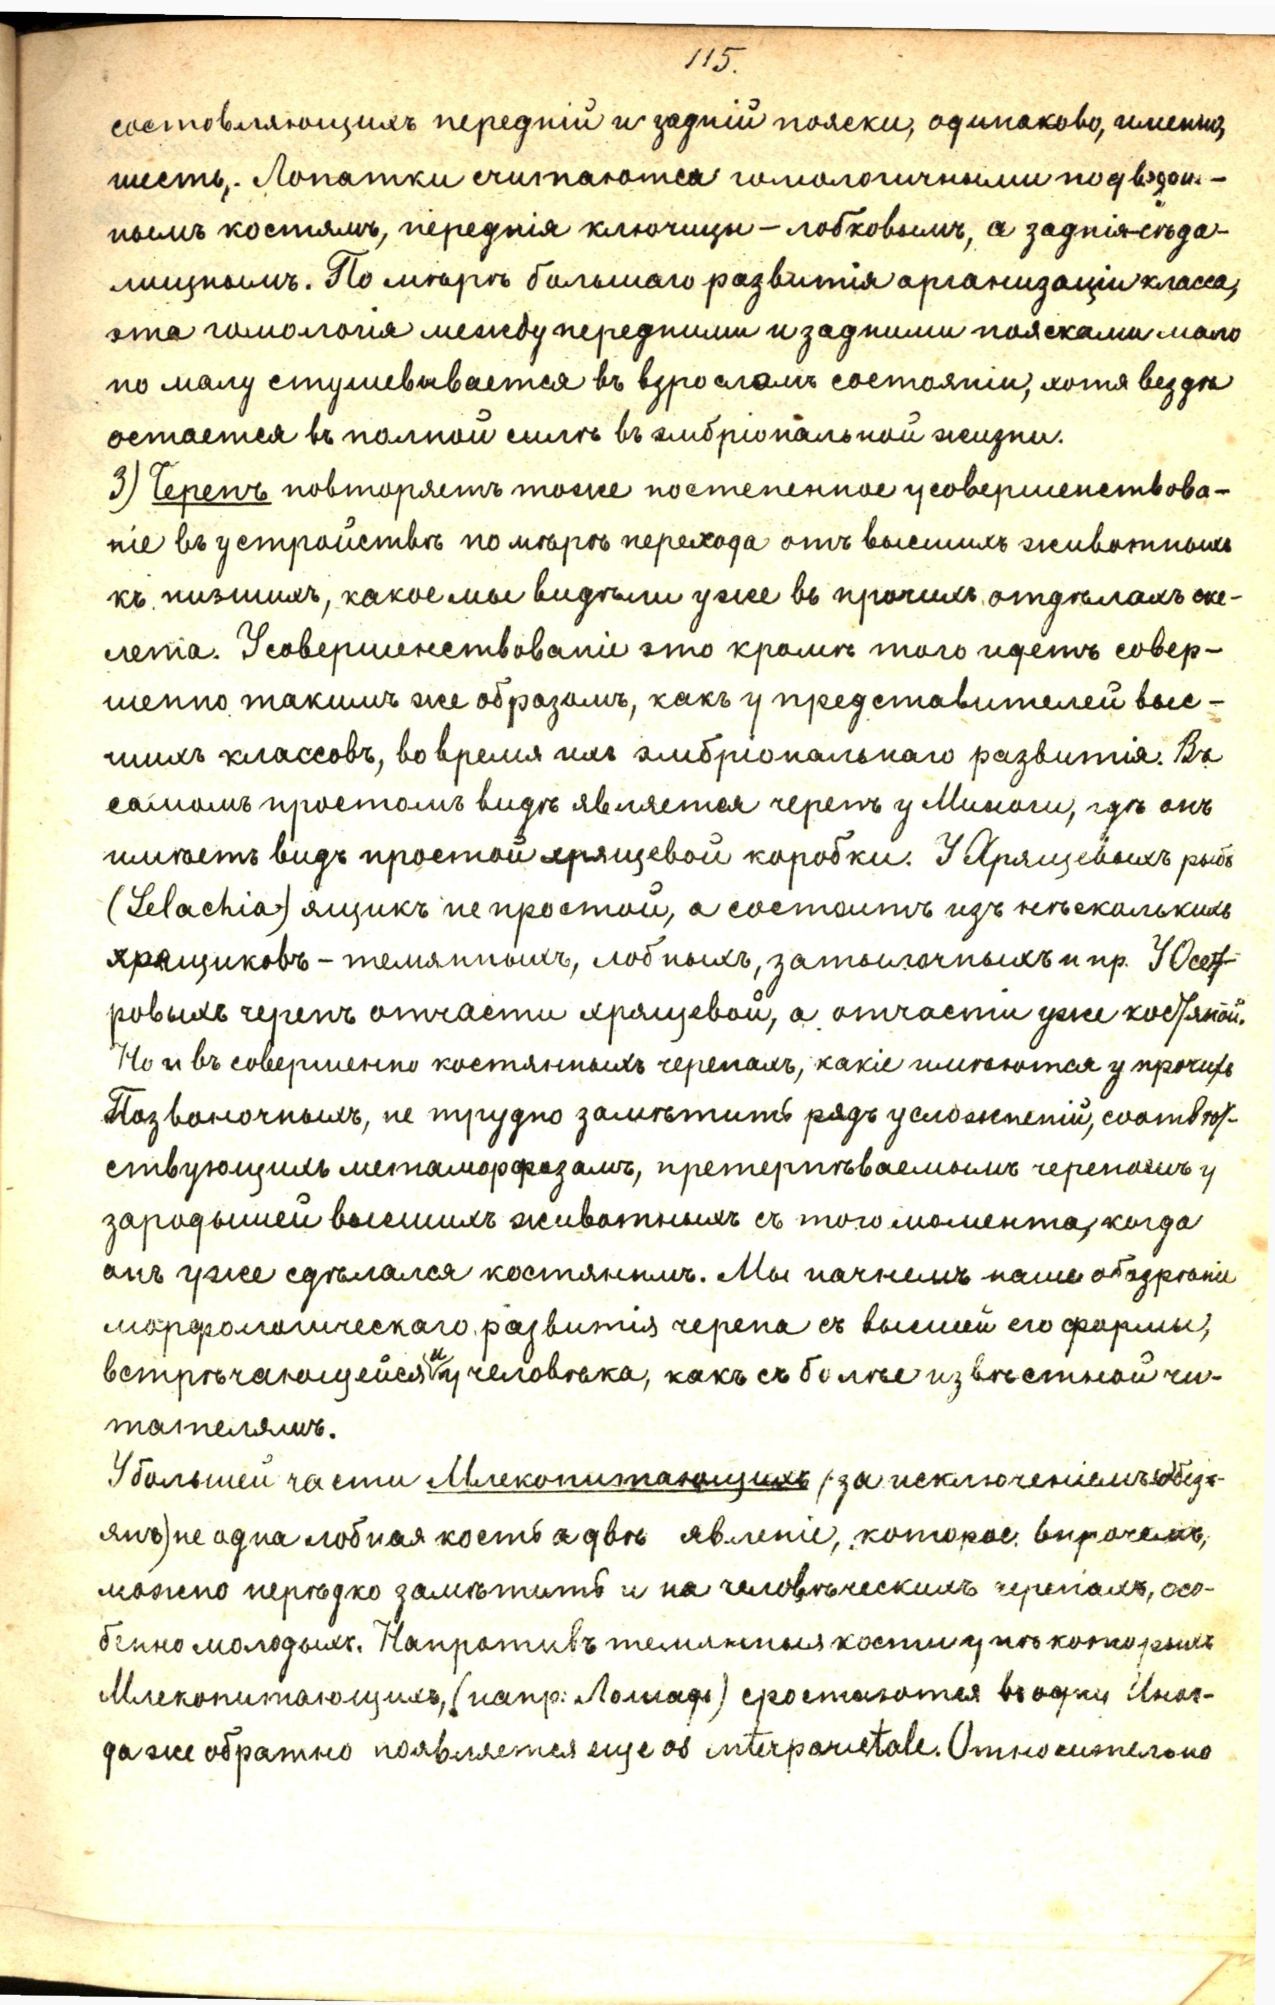 115.
состовляющихъ передній и задній пояски, одинаково, именно,
шесть,. Лопатки считаются гомологичными подвздош-
нымъ костямъ, переднія ключицы – лобковымъ, а заднія – сѣда-
лищнымъ. По мѣрѣ большаго развитія организаціи класса,
эта гомологія между передними и задними поясками мало
по малу стушевывается въ взросломъ состояніи, хотя вездѣ
остается въ полной силѣ въ эмбріональной жизни.
3) Черепъ повторяетъ тоже постепенное усовершенствова-
ніе въ устройствѣ по мѣрѣ перехода отъ высшихъ животныхъ
къ низшихъ, какое мы видѣли уже въ прочихъ отдѣлахъ ске-
лета. Усовершенствованіе это кромѣ того идетъ совер-
шенно такимъ же образомъ, какъ у представителей выс-
шихъ классовъ, во время ихъ эмбріональнаго развитія. Въ
самомъ простомъ видѣ является черепъ у Миноги, гдѣ онъ
имѣетъ видъ простой хрящевой коробки. У Хрящевыхъ рыбъ
(Selachia) ящикъ не простой, а состоитъ изъ нѣсколькихъ
хрящиковъ – темянныхъ, лобныхъ, затылочныхъ и пр. У Осет-
ровыхъ черепъ отчасти хрящевой, а отчасти уже костяной.
Но и въ совершенно костянныхъ черепахъ, какіе имѣются у прочихъ
Позвоночныхъ, не трудно замѣтить рядъ усложненій, соотвѣт-
ствующихъ метаморфозамъ, претерпѣваемымъ черепомъ у
зародышей высшихъ животныхъ съ того момента, когда
онъ уже сдѣлался костянымъ. Мы начнемъ наше обозрѣніе
морфологическаго развитія черепа съ высшей его формы,
встрѣчающейся и у человѣка, какъ съ болѣе извѣстной чи-
тателямъ.
У большей части Млекопитающихъ (за исключеніемъ обезь-
янъ) не одна лобная кость а двѣ явленіе, которое впрочемъ,
можно нерѣдко замѣтить и на человѣческихъ черепахъ, осо-
бенно молодыхъ. Напротивъ темянныя кости у нѣкоторыхъ
Млекопитающихъ, (напр: Лошадь) сростаются въ одну Иног-
да же обратно появляется еще os interparietale. Относительно